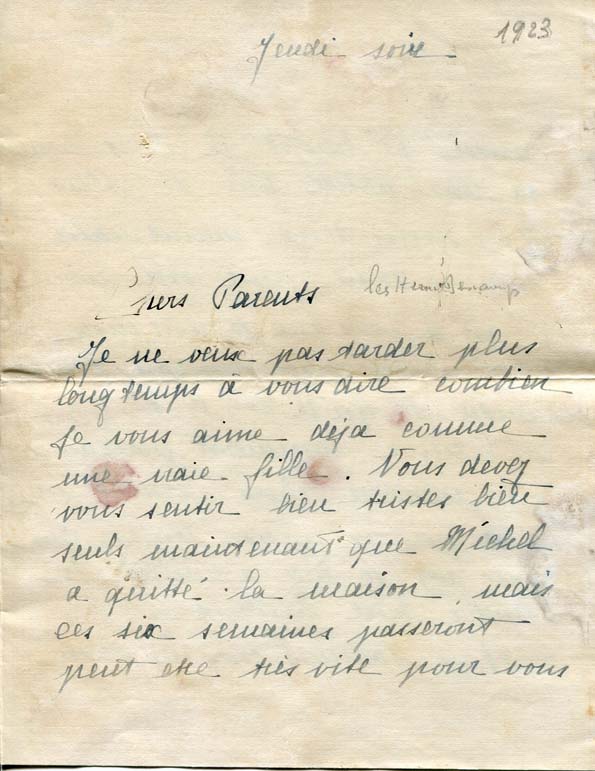 1923
Jeudi soir
Chers Parents les Henri
Je ne veux pas tarder plus
longtemps à vous dire combien
je vous aime déja comme
une vraie fille. Vous devez
vous sentir bien tristes bien
seuls maintenant que Michel
a quitté la maison, mais
ces six semaines passeront
peut etre très vite pour vous